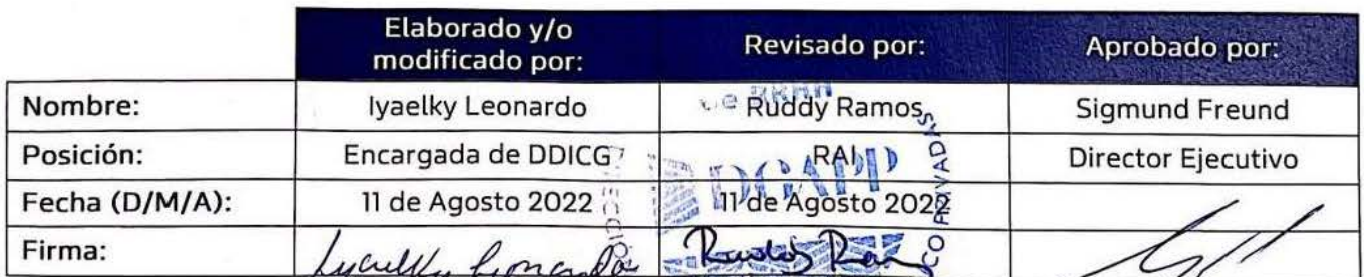 Elaborado y/o modificado por: Revisado por: Aprobado por:
Nombre: Iyaelky Leonardo Ruddy Ramos Sigmund Freund
Posición: Encargada de DDICG RAI Director Ejecutivo
Fecha (D/M/A): 11 de Agosto 2022 11 de Agosto 2022
Firma: Iyaelky Leonardo
de RRHH
DGAPP